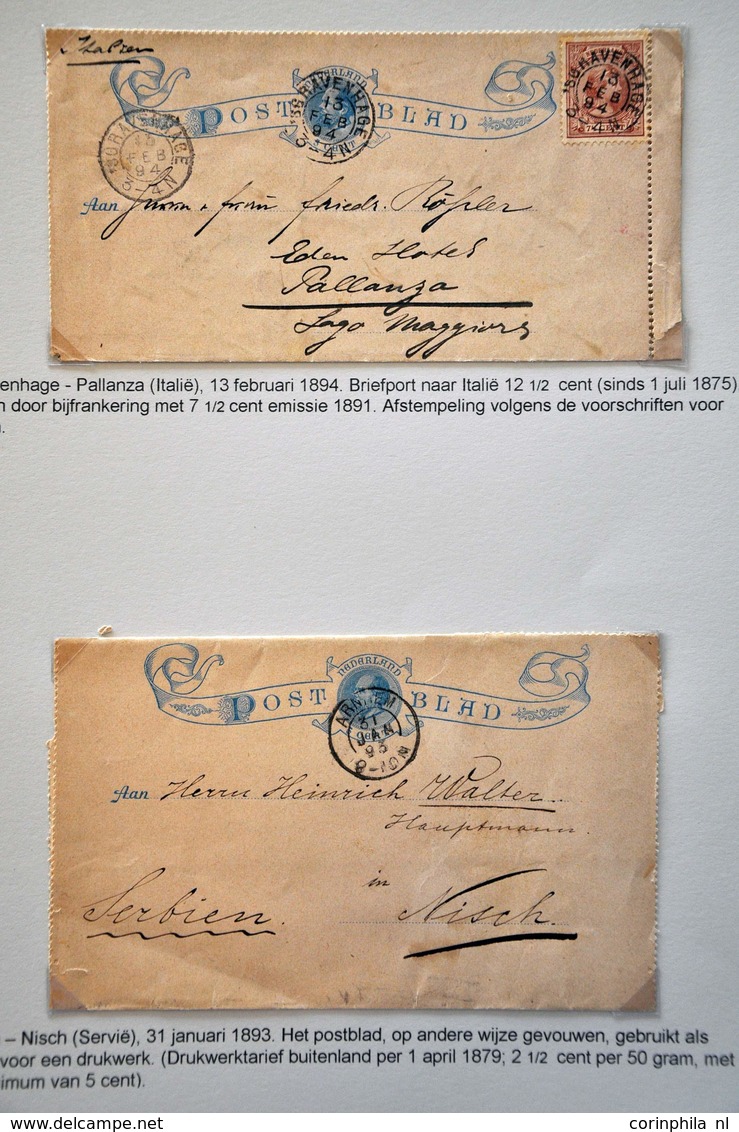 Italien
NEDERLAND
POST BLAD
'SGRAVENHAGE
13
FEB
94
3-4N
'SGRAVENHAGE
13
FEB
94
3-4N
'SGRAVENHAGE
13
FEB
94
3-4N
Aan Herrn & Frau Friedr. Rößler
Eden Hotel
Pallanza
Lago Maggiore
enhage - Pallanza (Italië), 13 februari 1894. Briefport naar Italië 12 1/2 cent (sinds 1 juli 1875)
n door bijfrankering met 7 1/2 cent emissie 1891. Afstempeling volgens de voorschriften voor
NEDERLAND
POST BLAD
ARNHEM
31
JAN
93
8-10N
Aan Herrn Heinrich Walter
Hauptmann
in
Serbien. Nisch.
– Nisch (Servië), 31 januari 1893. Het postblad, op andere wijze gevouwen, gebruikt als
voor een drukwerk. (Drukwerktarief buitenland per 1 april 1879; 2 1/2 cent per 50 gram, met
imum van 5 cent).
corinphila nl